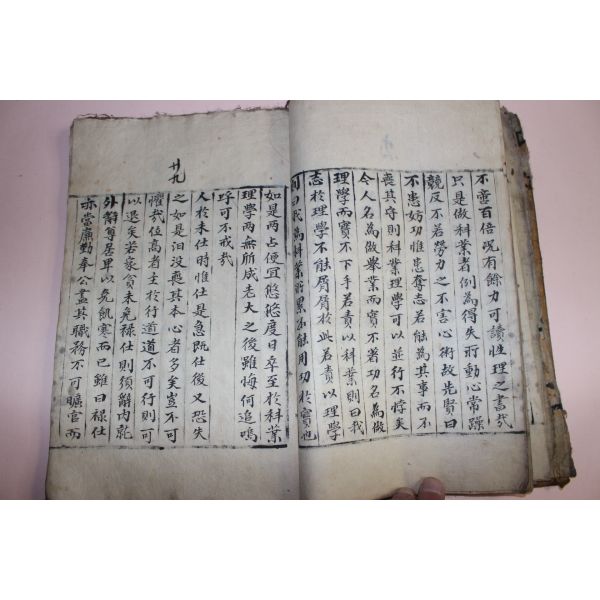 不啻百倍況有餘力可讀性理之書哉
只是做科業者例為得失所動心常躁
競反不若勞力之不害心術故先賢曰
不患妨功惟患奪志若能為其事而不
喪其守則科業理學可以並行不悖矣
今人名為做舉業而實不著功名為做
理學而實不下手若責以科業則曰我
志於理學不能屑屑於此若責以理學
則曰我為科業所累不能用功於實地
廿九
如是两占便宜悠悠度日卒至於科業
理學两無所成老大之後雖悔何追嗚
呼可不戒哉
人於未仕時惟仕是急既仕後又恐失
之如是汨没喪其本心者多矣豈不可
懼哉位高者主於行道道不可行則可
以退矣若家貧未免祿仕則須辭內就
外辭尊居卑以免飢寒而已雖曰祿仕
亦當廉勤奉公盡其職務不可曠官而